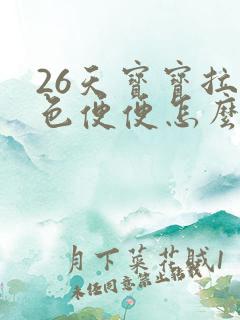 26天寶寶拉
色便便怎麼
月下葉花賊1
未經同意禁止轉載